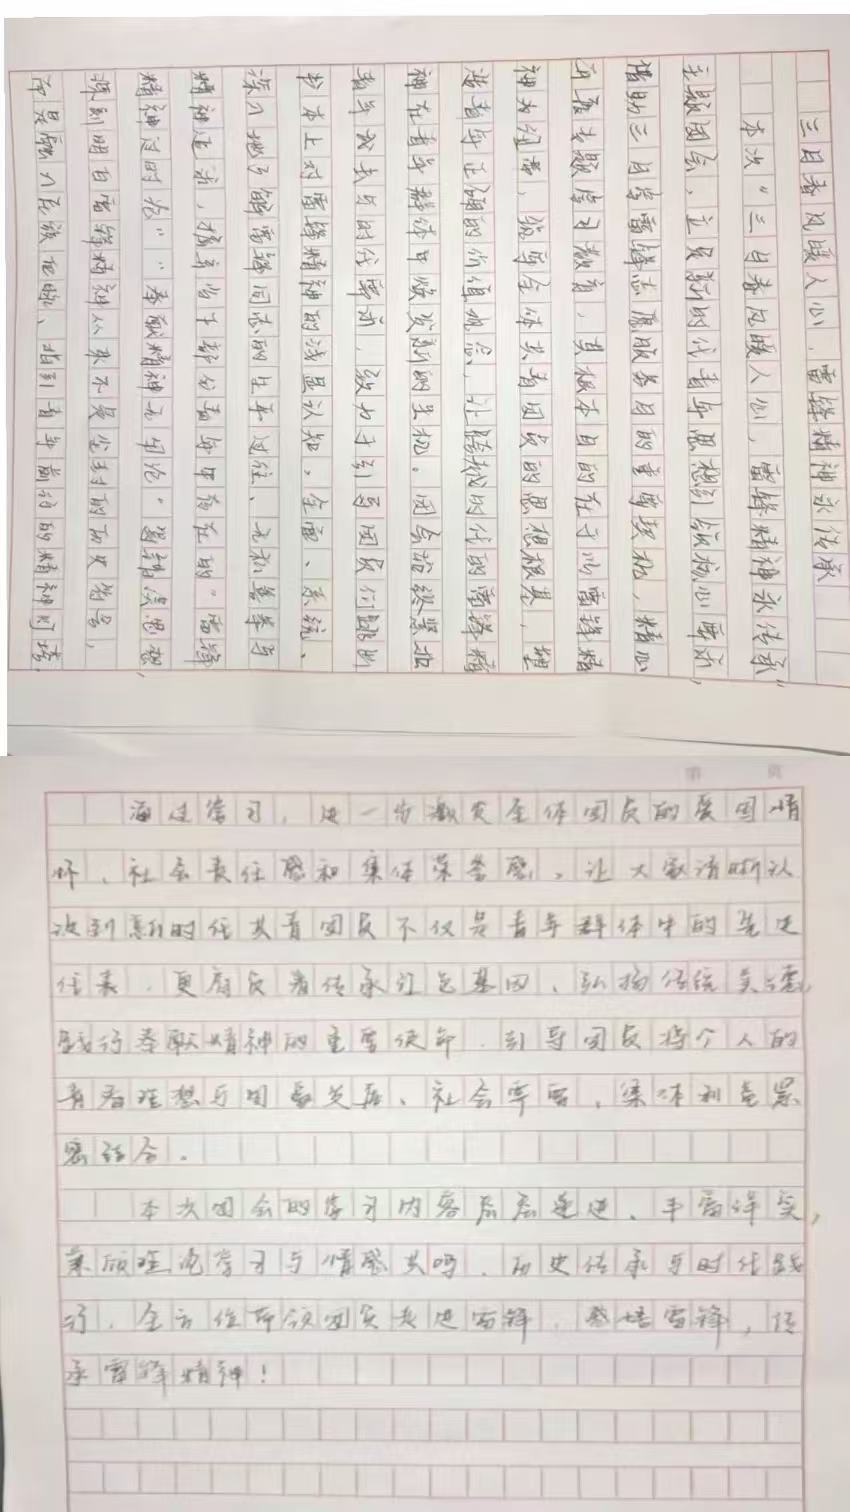 三月春风暖人心,雷锋精神永传承
本次“三月春风暖人心,雷锋精神永传承”
主题团会,立足新时代青年思想引领核心要求,
借助三月学雷锋志愿服务月的重要契机,精心
开展专题学习教育,其根本目的在于以雷锋精
神为纽带,筑牢全体共青团员的思想根基,塑
造青年正确的价值观念,让跨越时代的雷锋精
神在青年群体中焕发新的生机。团会始终紧扣
青年成长与时代需求,致力于引导团员们跳出
书本上对雷锋精神的浅显认知,全面、系统、
深入地了解雷锋同志的生平过往、无私善举与
精神追求,摒弃当下部分青年中存在的“雷锋
精神过时论”“奉献精神无用论”等错误思想,
深刻明白雷锋精神从来不是尘封的历史符号,
而是融入民族血脉、指引青年前行的精神灯塔。
通过学习,进一步激发全体团员的爱国情
怀、社会责任感和集体荣誉感,让大家清晰认
识到新时代共青团员不仅是青年群体中的先进
代表,更肩负着传承红色基因、弘扬传统美德,
践行奉献精神的重要使命,引导团员将个人的
青春理想与国家发展、社会需要、集体利益紧
密结合。
本次团会的学习内容层层递进、丰富详实,
兼顾理论学习与情感共鸣、历史传承与时代践
行,全方位带领团员走进雷锋,感悟雷锋,传
承雷锋精神!